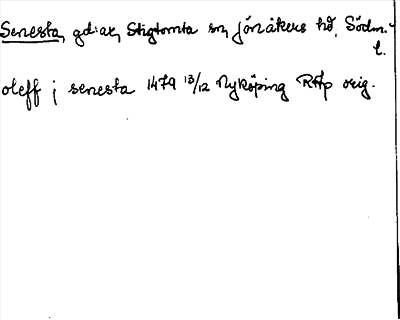 Senesta, gd:ar, Stigtomta sn, Jönåkers hd, Södm.
l.
oleff j senesta 1479 13/12 Nyköping RAp orig.